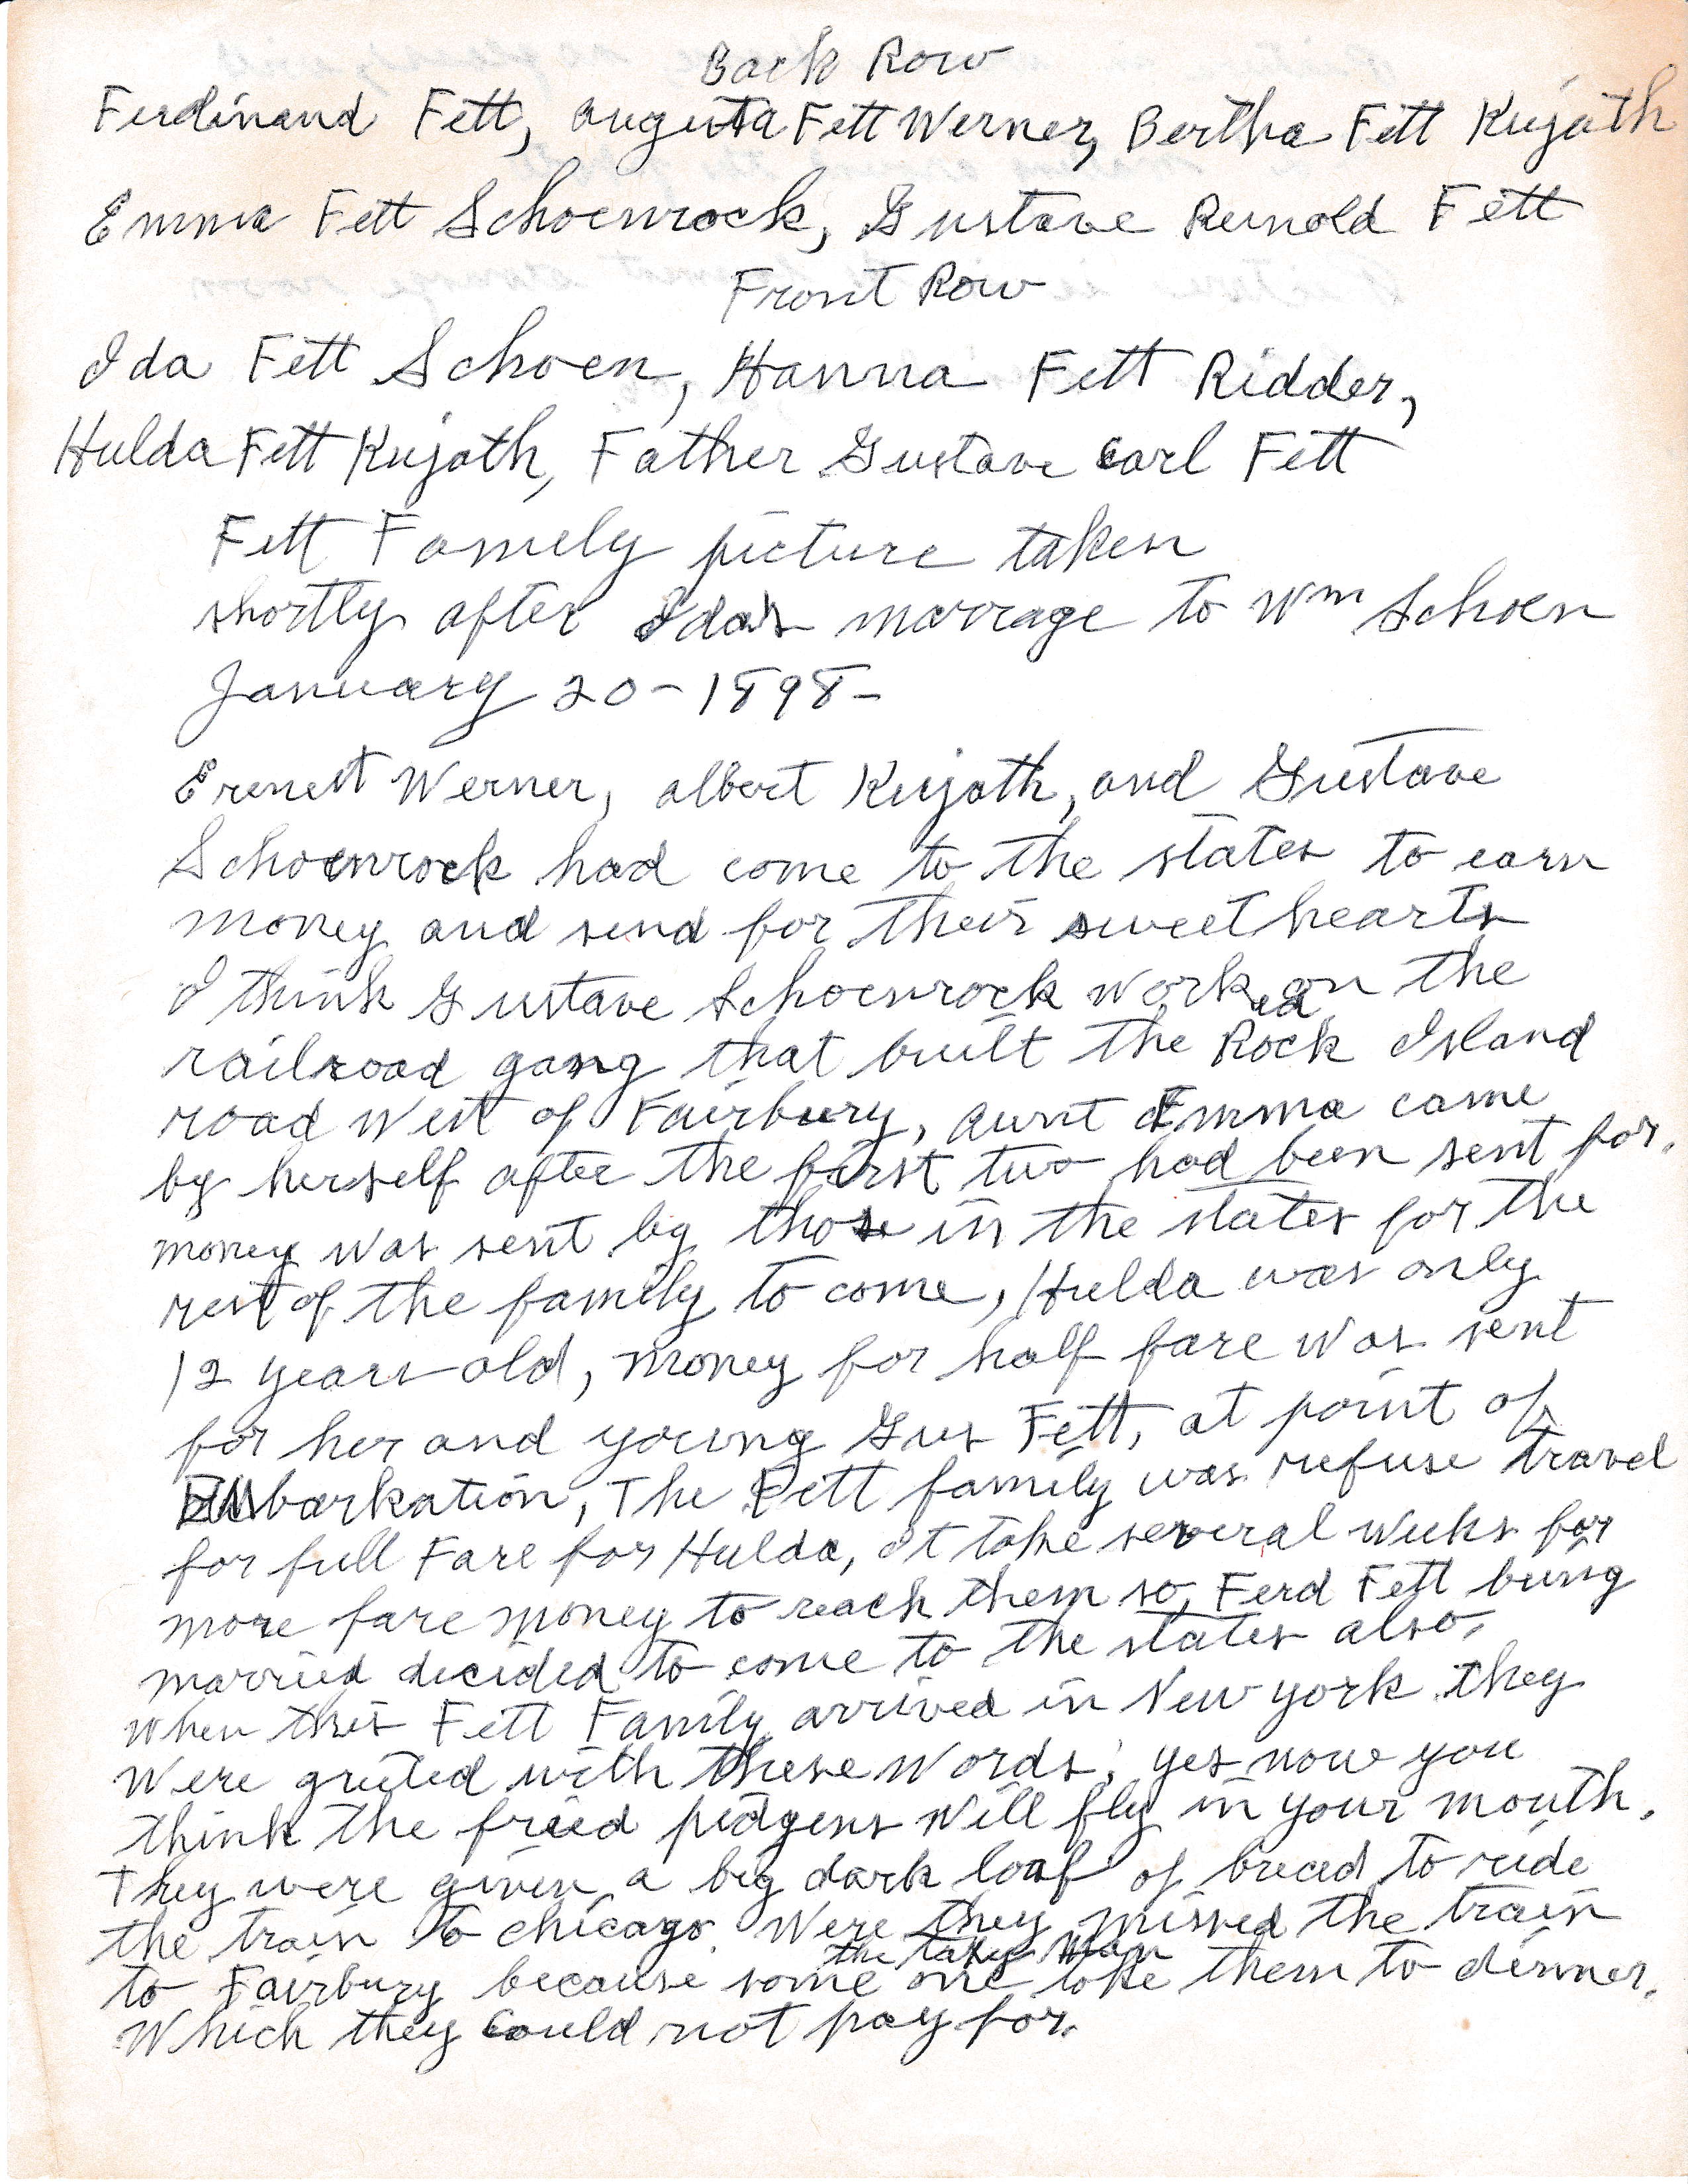 Back Row
Ferdinand Fett, Augusta Fett Werner, Bertha Fett Kujath
Emma Fett Schoenrock, Gustave Reinold Fett
Front Row
Ida Fett Schoen, Hanna Fett Ridder,
Hulda Fett Kujath, Father Gustave Carl Fett
Fett Famely picture taken
shortly after Ida's marrage to Wm Schoen
January 20-1898-
Erenest Werner, Albert Kujath, and Gustave
Schoenrock had come to the states to earn
money and send for their sweethearts
I think Gustave Schoenrock worked on the
railroad gang that built the Rock Island
road west of Fairbury, Aunt Emma came
by herself after the first two had been sent for.
money was sent by those in the states for the
rest of the family to come, Hulda was only
12 years old, money for half fare was sent
for her and young Gus Fett, at point of
Embarkation, The Fett family was refuse travel
for full Fare for Hulda, It take several weeks for
more fare money to reach them so, Ferd Fett being
married decided to come to the states also,
when this Fett Family arrived in New York they
were greeted with these words; yes now you
think the fried pidgens will fly in your mouth.
They were given a big dark loaf of bread to ride
the train to Chicago. Were they missed the train
the Man
to Fairbury because some one toke them to dinner.
Which they could not pay for.